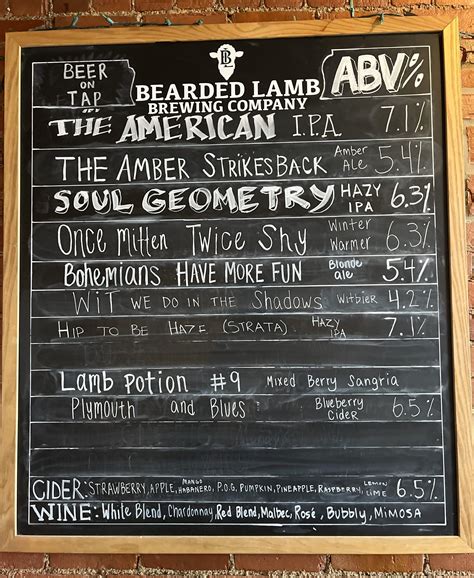 BEER ON TAP
BL
BEARDED LAMB
BREWING COMPANY
ABV%
THE AMERICAN I.P.A 7.1%
THE AMBER STRIKES BACK Amber Ale 5.4%
SOUL GEOMETRY HAZY IPA 6.3%
Once Mitten Twice Shy Winter Warmer 6.3%
Bohemians HAVE MORE FUN Blonde ale 5.4%
WiT WE DO IN THE SHADOWS Witbier 4.2%
HIP TO BE HAZE (STRATA) HAZY IPA 7.1%
Lamb Potion #9 Mixed Berry Sangria
Plymouth and Blues: Blueberry Cider 6.5%
CIDER: STRAWBERRY, APPLE, MANGO HABANERO, P.O.G, PUMPKIN, PINEAPPLE, RASPBERRY, LEMON LIME 6.5%
WINE: White Blend, Chardonnay, Red Blend, Malbec, Rosé, Bubbly, MIMOSA